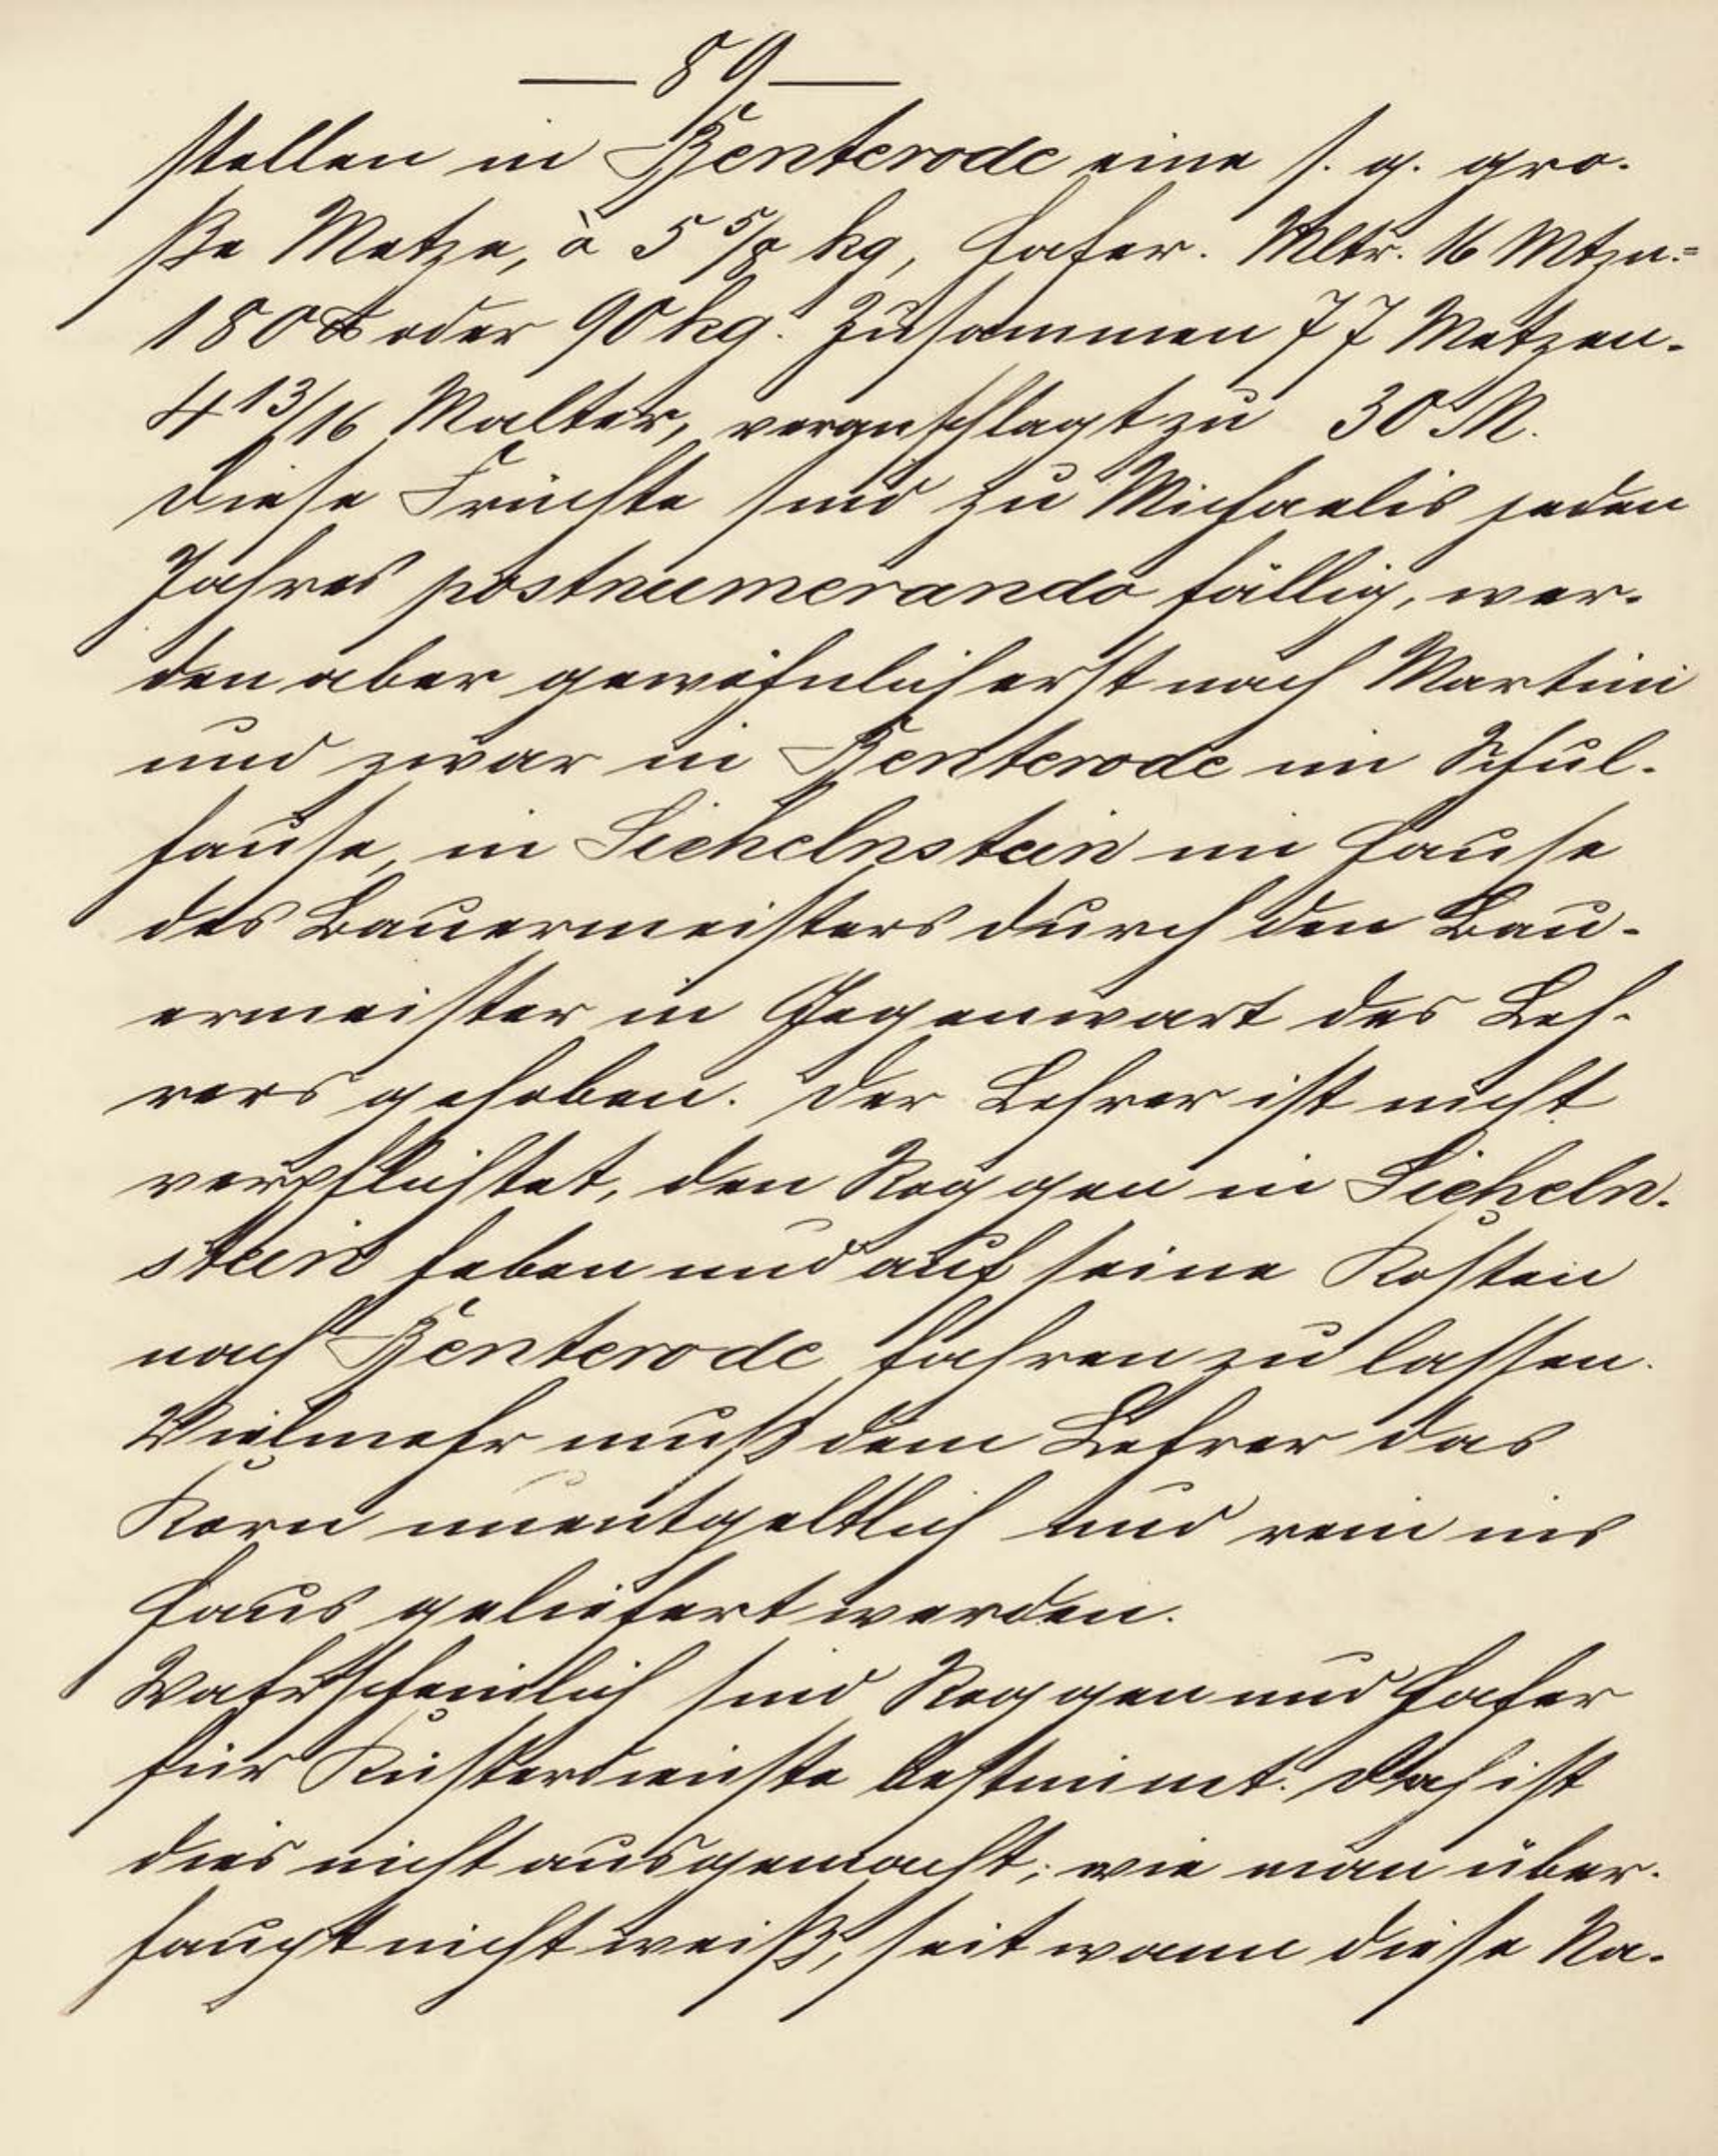 — 89 —
stellen in Benterode eine s. g. gro-
ße Metze, à 5 5/8 kg, Hafer. Mltr. 16 Mtzn.=
180 ℔ oder 90 kg. Zusammen 77 Metzen-
4 13/16 Malter, veranschlagt zu 30 M.
Diese Früchte sind zu Michaelis jeden
Jahres postnumerando fällig, wer-
den aber gewöhnlich erst nach Martini
und zwar in Benterode im Schul-
hause, in Sichelnstein im Hause
des Bauermeisters durch den Bau-
ermeister in Gegenwart des Leh-
rers gehoben. Der Lehrer ist nicht
verpflichtet, den Roggen in Sicheln-
stein heben und auf seine Kosten
nach Benterode fahren zu lassen.
Vielmehr muß dem Lehrer das
Korn unentgeltlich und rein ins
Haus geliefert werden.
Wahrscheinlich sind Roggen und Hafer
für Küsterdienste bestimmt. Doch ist
dies nicht ausgemacht; wie man über-
haupt nicht weiß, seit wann diese Na-